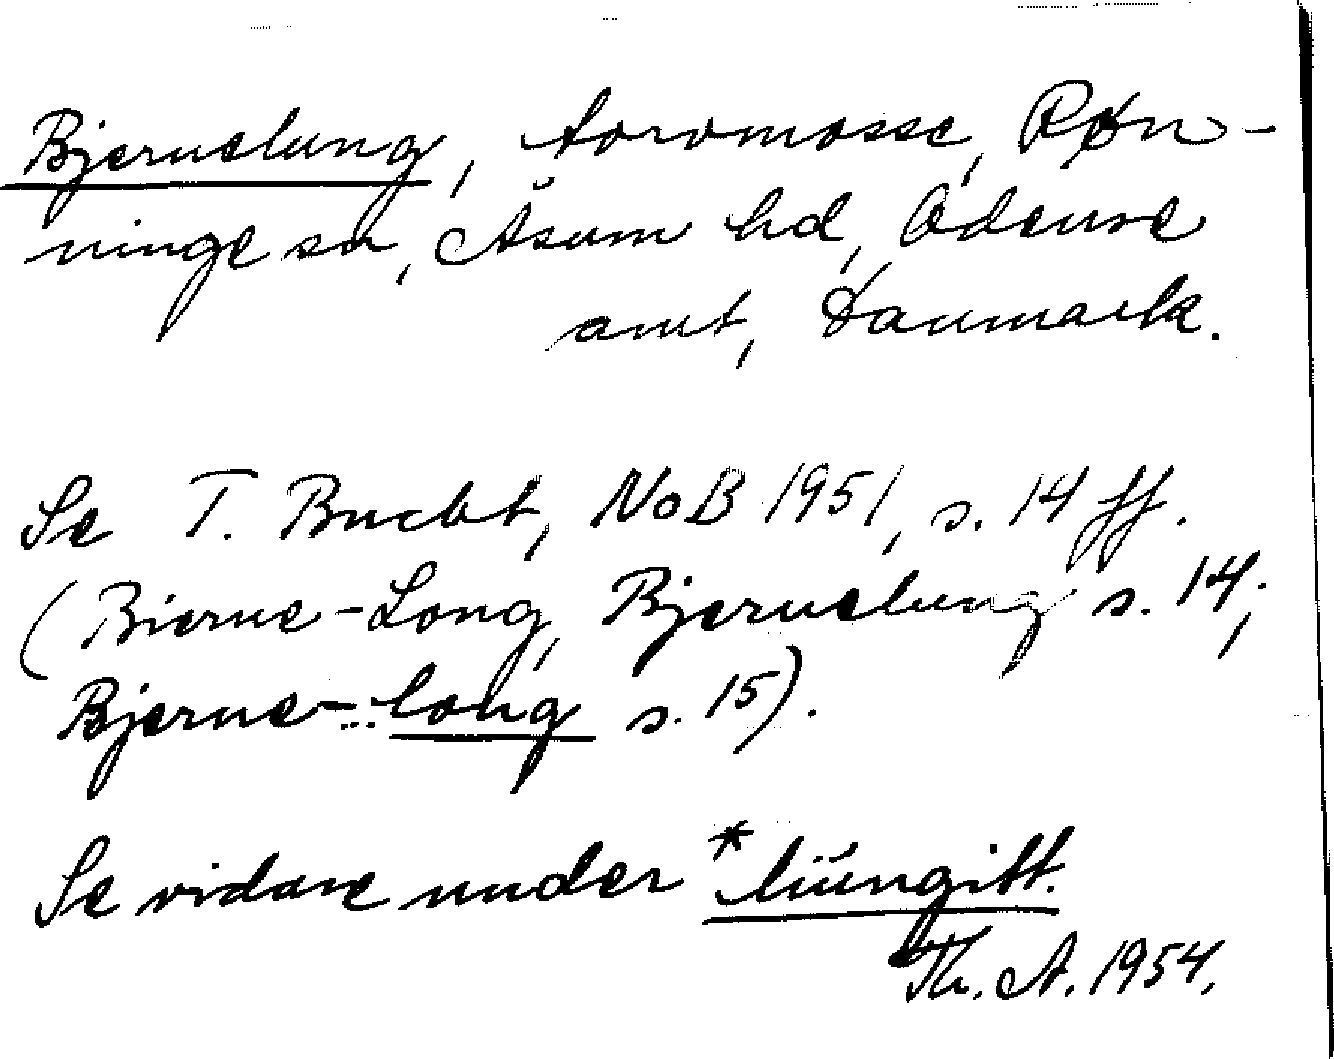 Bjernelung, torvmosse, Røn-
ninge sn, Åsum hd, Odense
amt, Danmark.
Se T. Bucht, NoB 1951, s. 14 ff.
(Bierne-Long, Bjernelung s. 14;
Bjerne-long s. 15).
Se vidare under
Th. A. 1954.